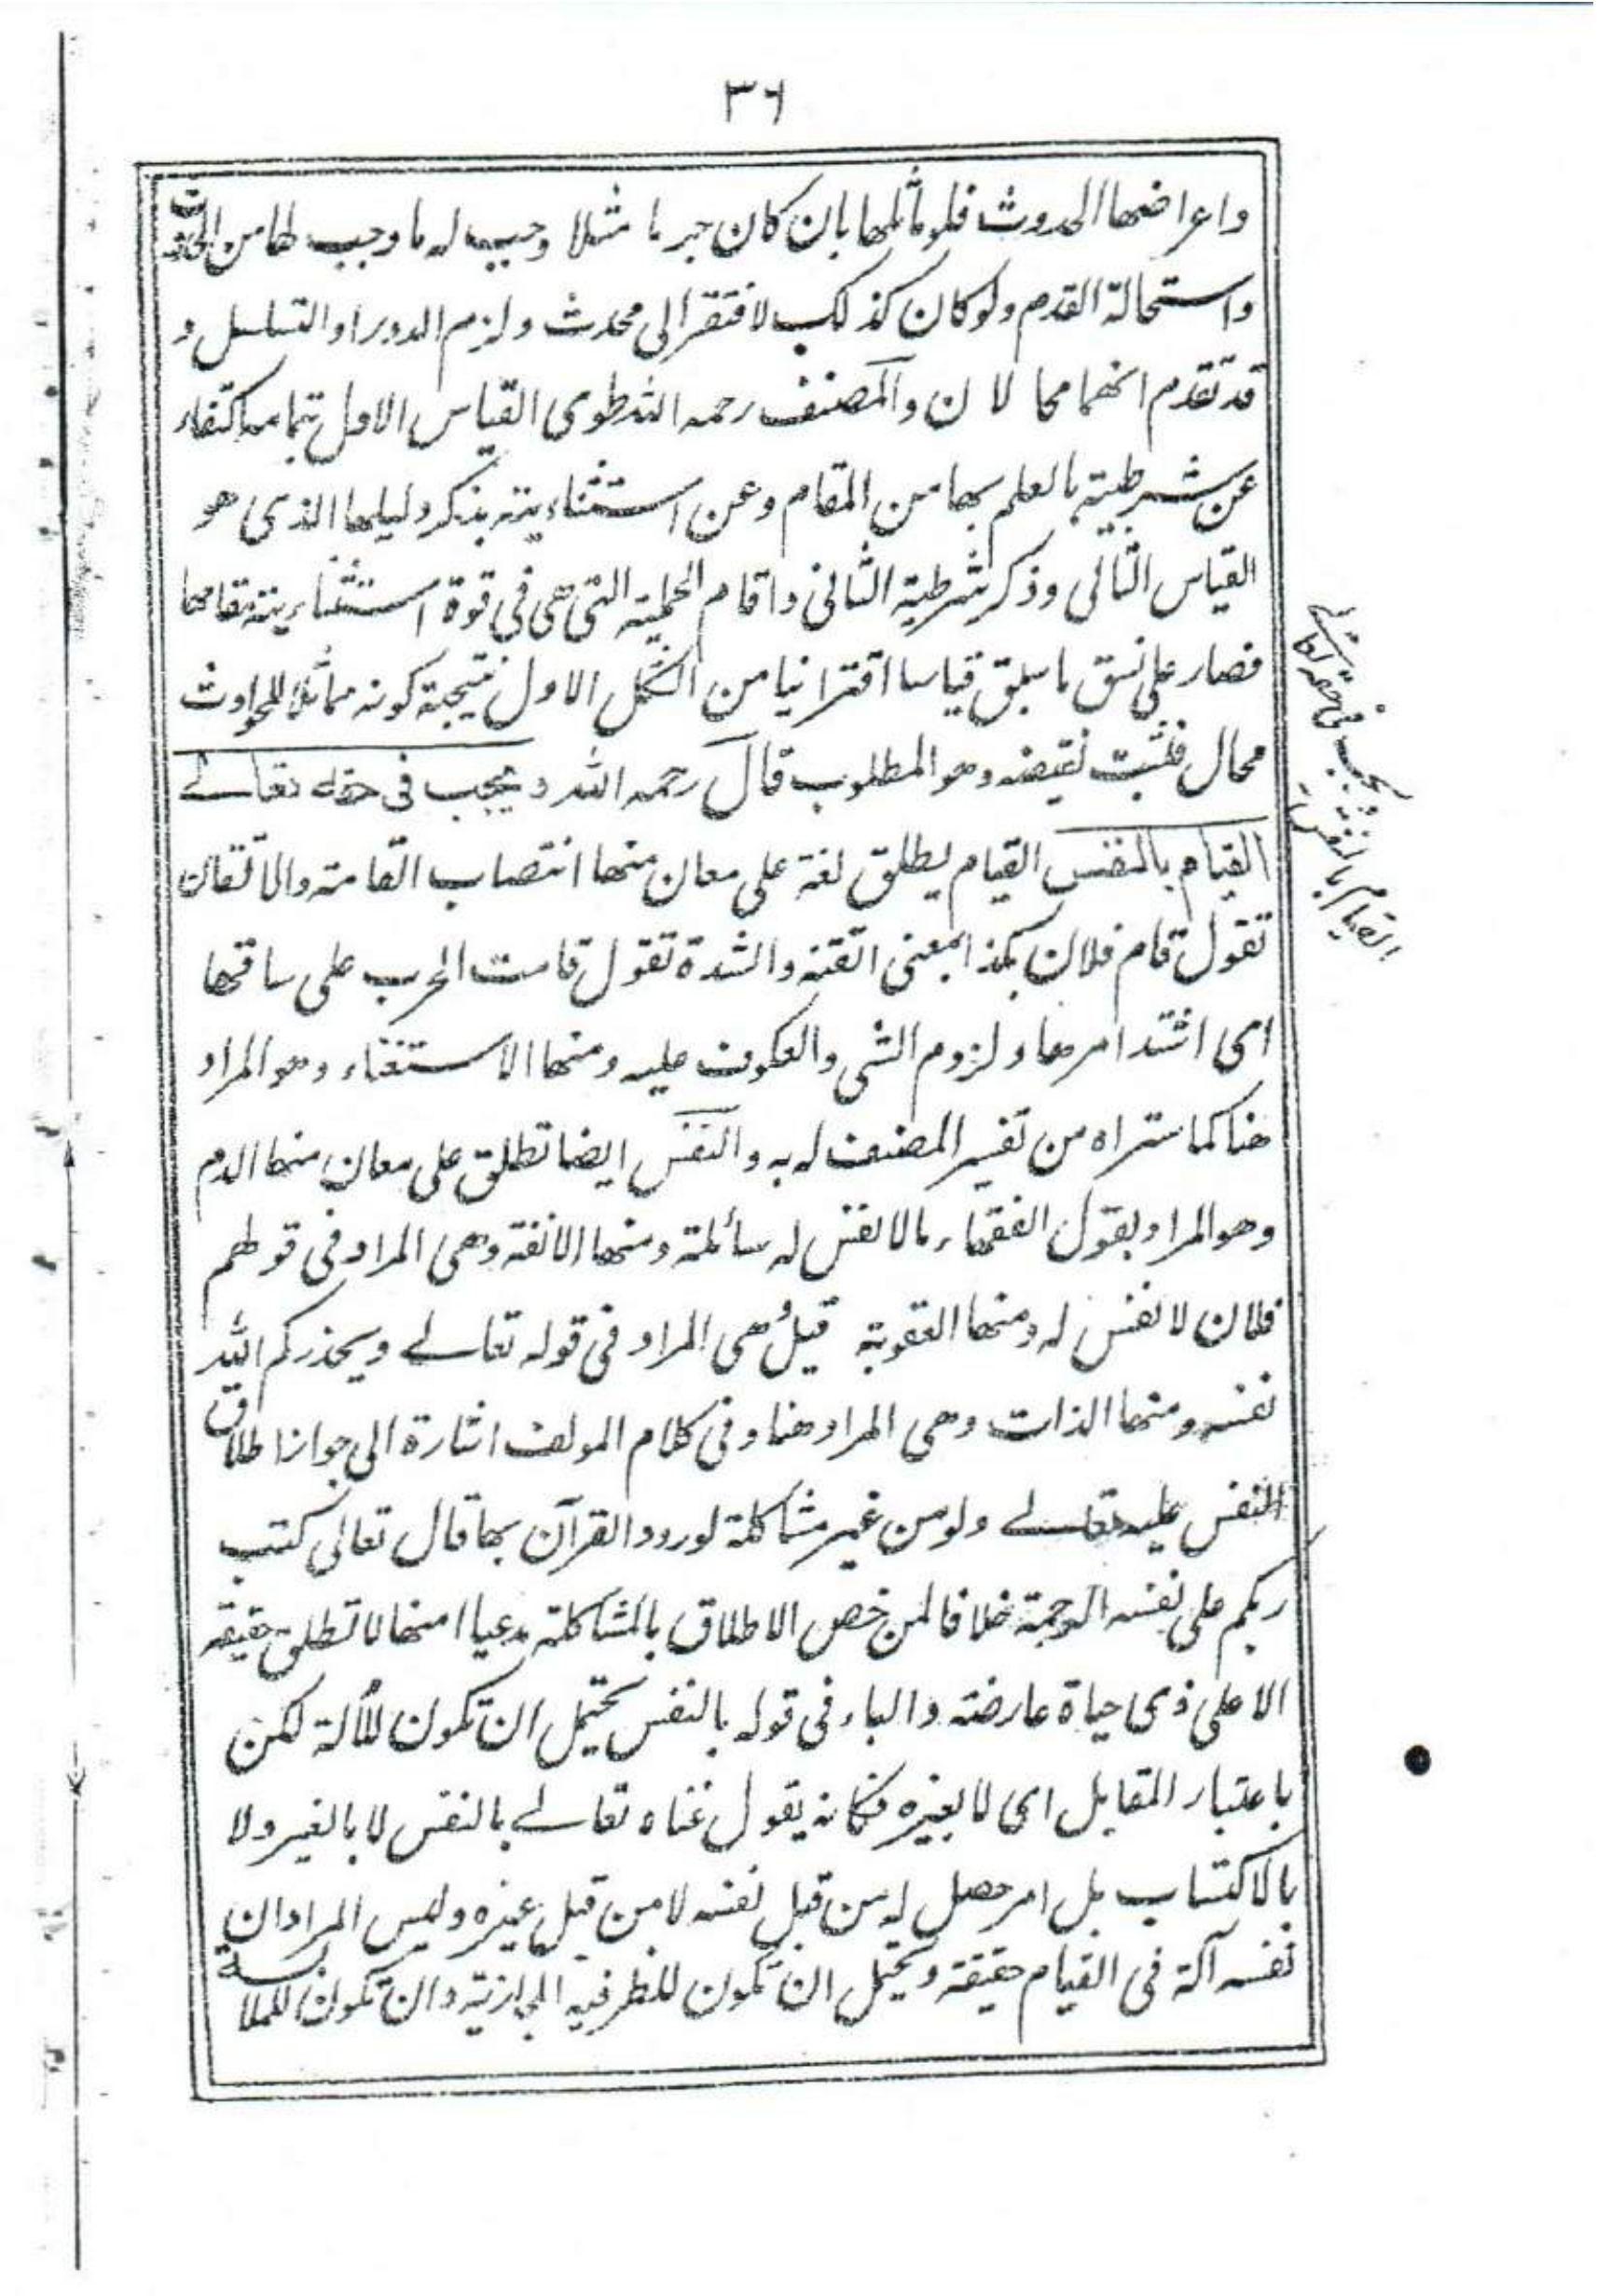 ٣٦
واعراضها الحدوث فلو ماثلها بان كان جرما مثلا وجب له ما وجب لها من الحدوث
واستحالة القدم ولو كان كذلك لافتقر الى محدث ولزم الدور او التسلسل و
قد تقدم انهما محالان والمصنف رحمه الله طوى القياس الاول بتمامه اكتفاء
عن شرطيته بالعلم بها من المقام وعن استثنائيته بذكر دليلها الذى هو
القياس الثانى وذكر شرطية الثانى واقام الحملية التى هى فى قوة استثنائيته مقامها
فصار على نسق ما سبق قياسا اقترانيا من الشكل الاول نتيجته كونه مماثلا للحوادث
محال فثبت نقيضه وهو المطلوب قال رحمه الله ويجب فى حقه تعالے
القيام بالنفس القيام يطلق لغة على معان منها انتصاب القامة والاتقان
تقول قام فلان بكذا بمعنى اتقنه والشدة تقول قامت الحرب على ساقها
اى اشتد امرها ولزوم الشى والعكوف عليه ومنها الاستغناء وهو المراد
هنا كما ستراه من تفسير المصنف له به والنفس ايضا تطلق على معان منها الدم
وهو المراد بقول الفقهاء ما لا نفس له سائلة ومنها الانفة وهى المراد فى قولهم
فلان لا نفس له ومنها العقوبة قيل وهى المراد فى قوله تعالے ويحذركم الله
نفسه ومنها الذات وهى المراد هنا وفى كلام المولف اشارة الى جواز اطلاق
النفس عليه تعالے ولو من غير مشاكلة لورود القرآن بها قال تعالى كتب
ربكم على نفسه الرحمة خلافا لمن خص الاطلاق بالمشاكلة مدعيا انها لا تطلق حقيقة
الا على ذى حياة عارضة والباء فى قوله بالنفس يحتمل ان تكون للآلة لكن
باعتبار المقابل اى لا بغيره فكانه يقول غناه تعالے بالنفس لا بالغير ولا
بالاكتساب بل امر حصل له من قبل نفسه لا من قبل غيره وليس المراد ان
نفسه آلة فى القيام حقيقة ويحتمل ان تكون للظرفية المجازية وان تكون للملابسة
ويجب فى حقه تعالے
القيام بالنفس